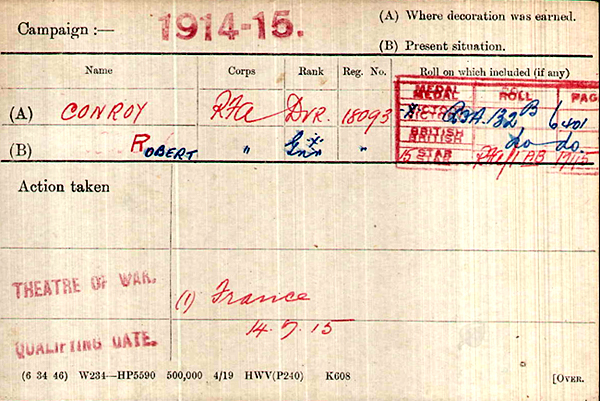 Campaign :— 1914-15.
(A) Where decoration was earned.
(B) Present situation.
Name Corps Rank Reg. No. Roll on which included (if any)
MEDAL ROLL PAGE
(A) CONROY RFA DVR. 18093 VICTORY RFA. 132 B 6401
(B) ROBERT " Gnr " BRITISH do do.
15 STAR RFA/1 BB
Action taken
THEATRE OF WAR. (1) France
QUALIFYING DATE. 14.7.15
(6 34 46) W234—HP5590 500,000 4/19 HWV(P240) K608 [OVER.